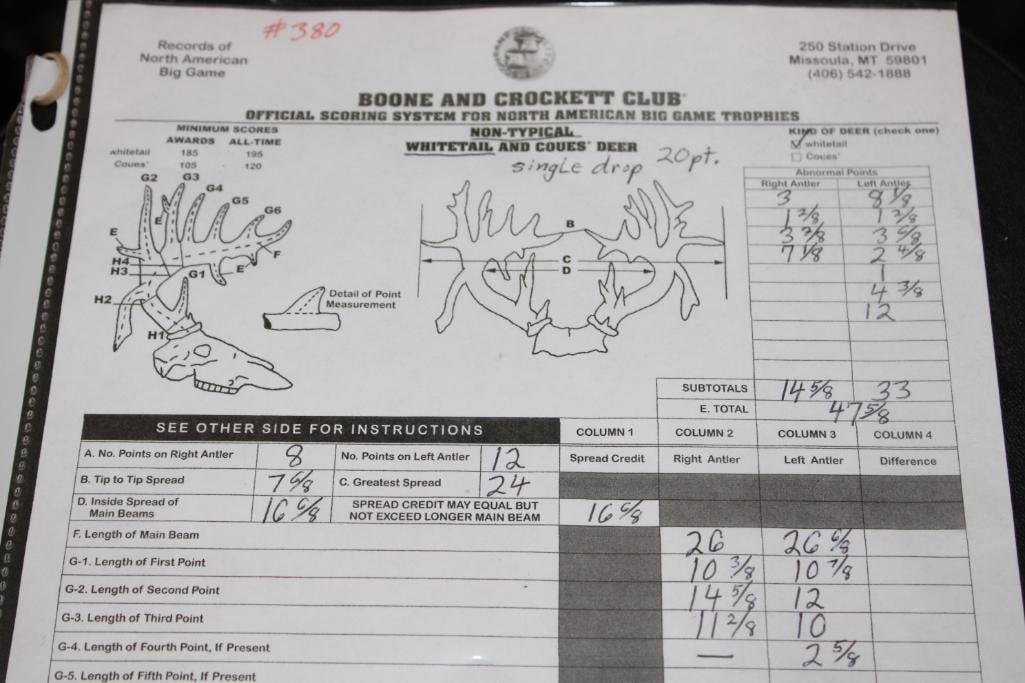 #380
Records of
North American
Big Game
250 Station Drive
Missoula, MT 59801
(406) 542-1888
BOONE AND CROCKETT CLUB®
OFFICIAL SCORING SYSTEM FOR NORTH AMERICAN BIG GAME TROPHIES
MINIMUM SCORES
AWARDS ALL-TIME
whitetail 185 195
Coues' 105 120
NON-TYPICAL
WHITETAIL AND COUES' DEER
single drop 20pt.
KIND OF DEER (check one)
whitetail
Coues'
Abnormal Points
Right Antler Left Antler
3 8 1/8
1 2/8 1 2/8
3 2/8 3 6/8
7 1/8 2 4/8
1
4 3/8
12
SUBTOTALS 14 5/8 33
E. TOTAL 47 5/8
G2 G3 G4 G5 G6
E E F
H4
H3 G1 E
H2
H1
Detail of Point
Measurement
B
C
D
SEE OTHER SIDE FOR INSTRUCTIONS COLUMN 1 COLUMN 2 COLUMN 3 COLUMN 4
A. No. Points on Right Antler 8 No. Points on Left Antler 12 Spread Credit Right Antler Left Antler Difference
B. Tip to Tip Spread 7 6/8 C. Greatest Spread 24
D. Inside Spread of
Main Beams 16 6/8 SPREAD CREDIT MAY EQUAL BUT
NOT EXCEED LONGER MAIN BEAM 16 6/8
F. Length of Main Beam 26 26 6/8
G-1. Length of First Point 10 3/8 10 7/8
G-2. Length of Second Point 14 5/8 12
G-3. Length of Third Point 11 2/8 10
G-4. Length of Fourth Point, If Present — 2 5/8
G-5. Length of Fifth Point, If Present